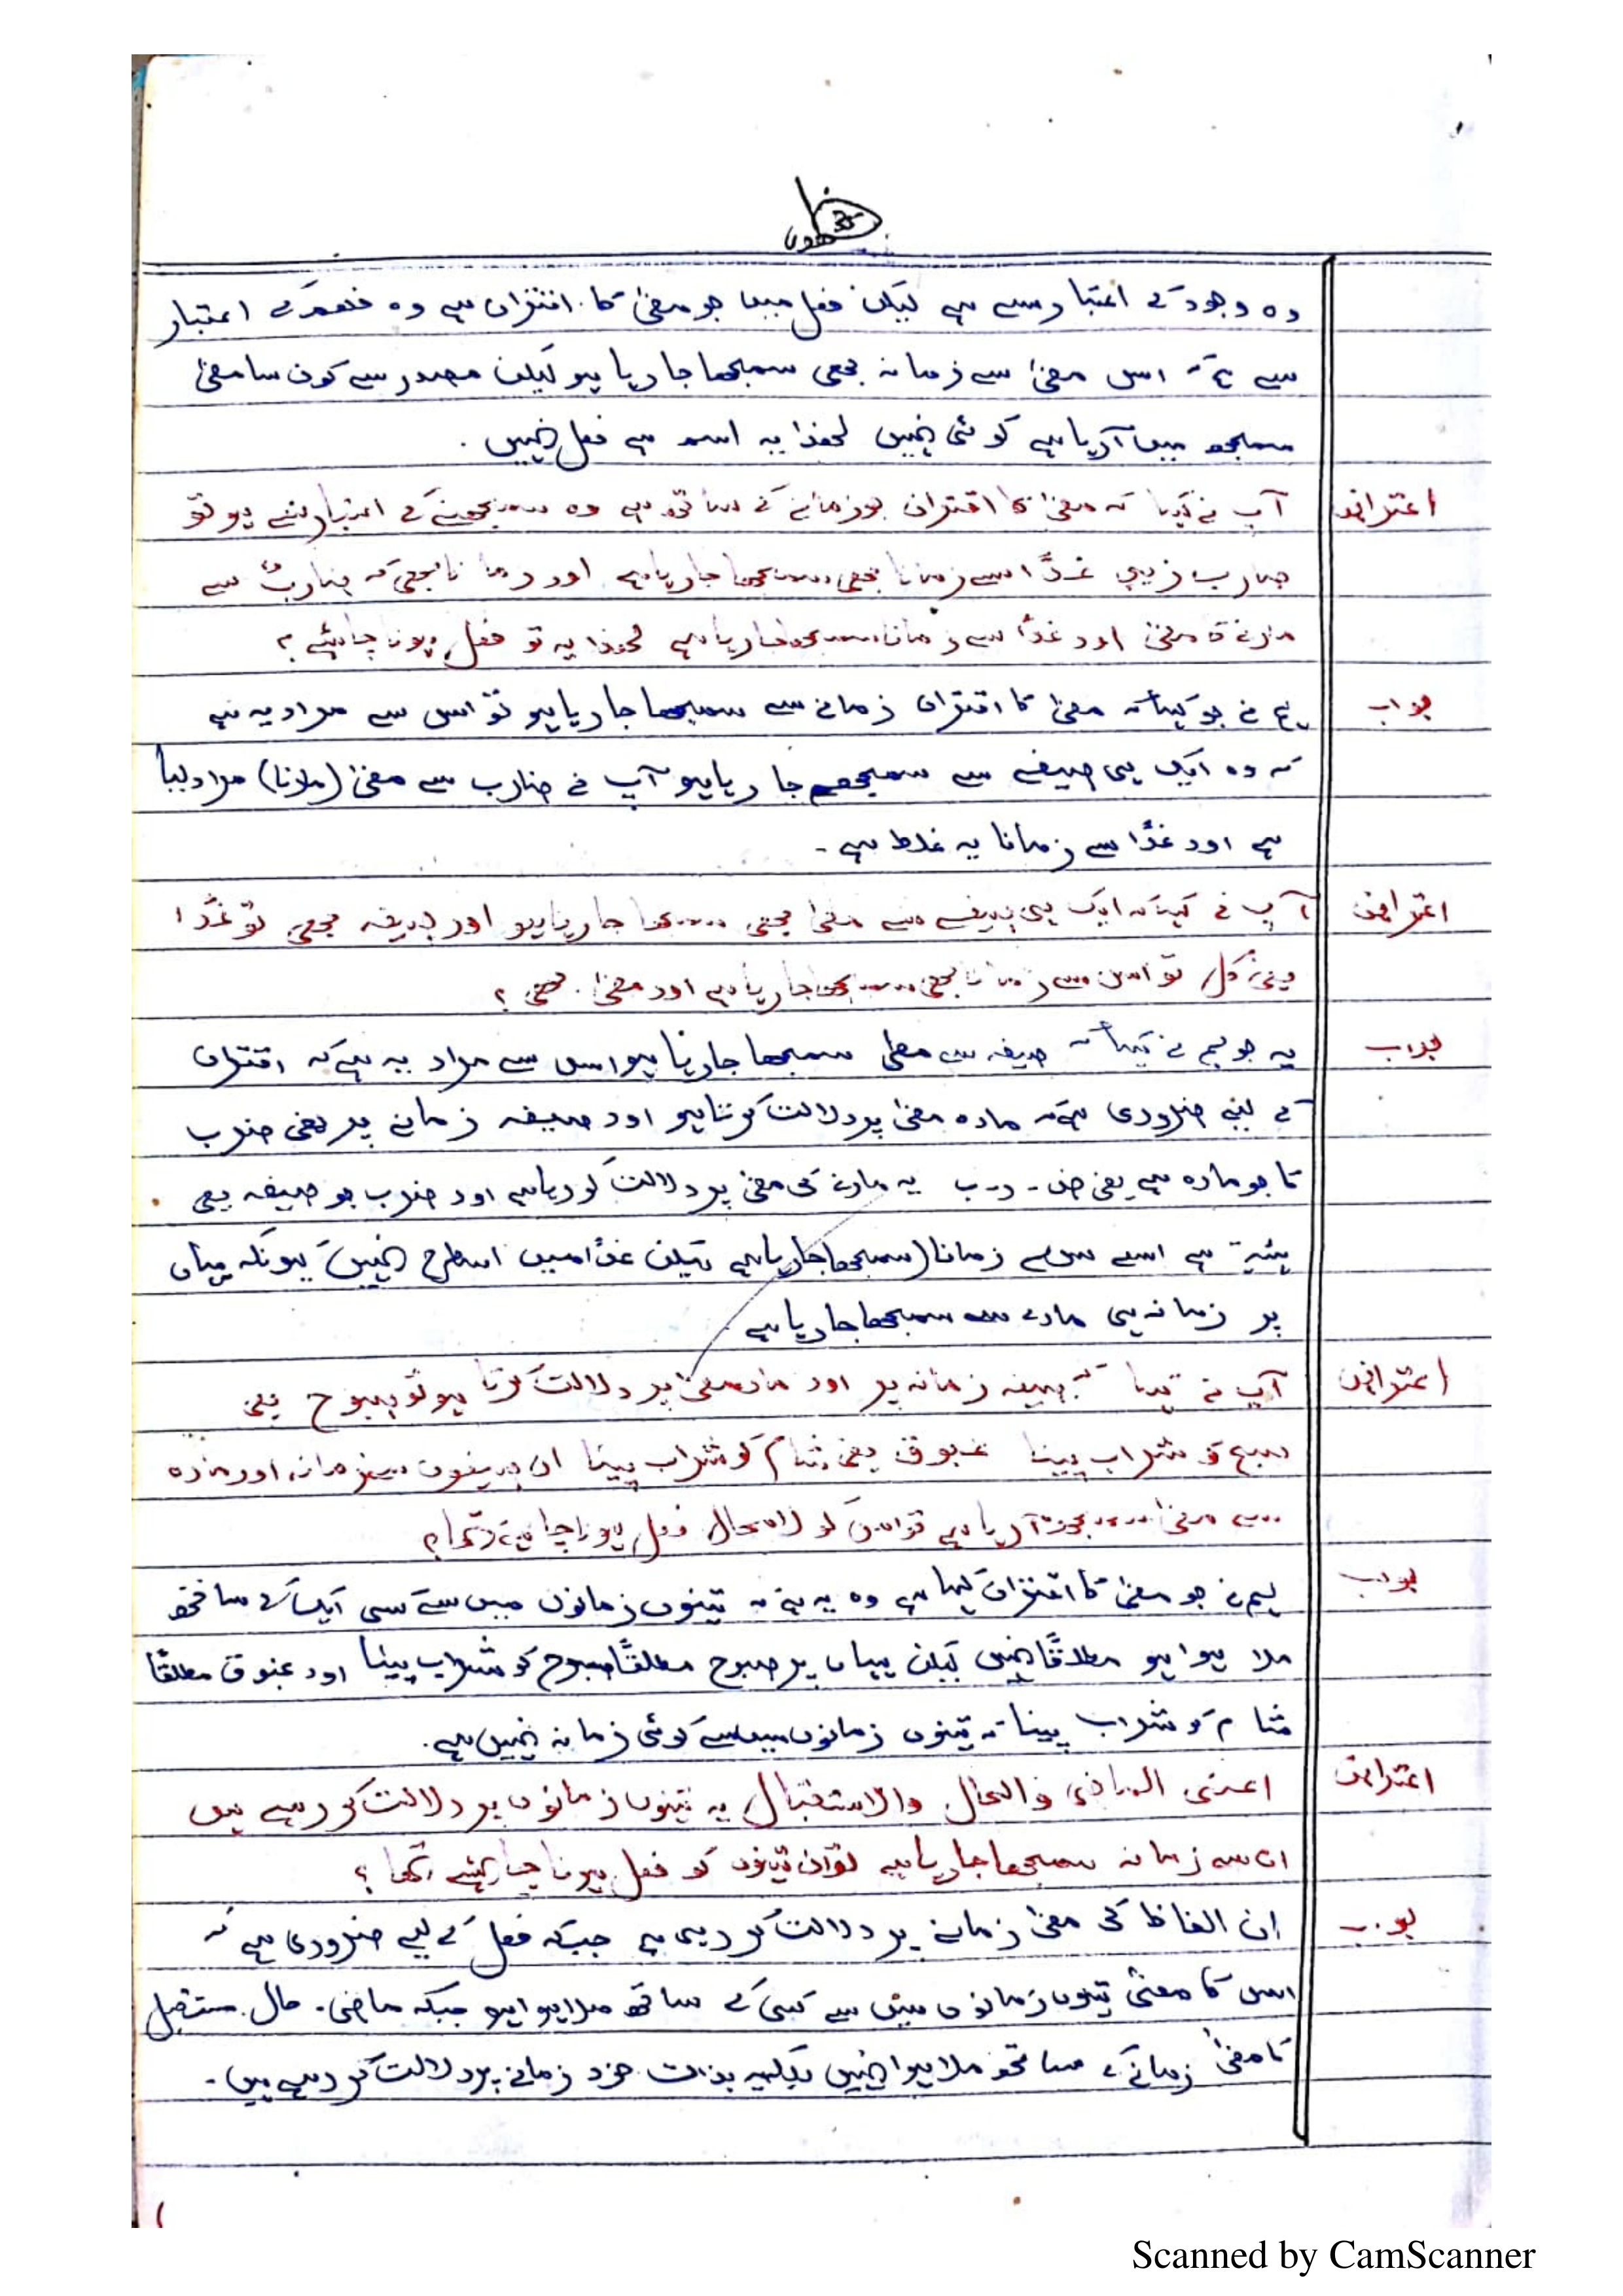 وہ وجود کے اعتبار سے ہے لیکن فعل میں جو معنیٰ کا اقتران ہے وہ فھم کے اعتبار
سے ہے کہ اس معنیٰ سے زمانہ بھی سمجھا جا رہا ہو لیکن مصدر سے کون سا معنیٰ
سمجھ میں آ رہا ہے کوئی نہیں لھذا یہ اسم ہے فعل نہیں ۔
اعتراض آپ نے کہا کہ معنیٰ کا اقتران جو زمانے کے ساتھ ہے وہ سمجھنے کے اعتبار سے ہو تو
ضارب زید غدًا اسے زمانا بھی سمجھا جا رہا ہے اور زمانا بھی کہ ضاربٌ سے
مارنے کا معنیٰ اور غدًا سے زمانا سمجھا جا رہا ہے لھذا یہ تو فعل ہونا چاہئے ؟
جواب ہم نے جو کہا کہ معنیٰ کا اقتران زمانے سے سمجھا جا رہا ہو تو اس سے مراد یہ ہے
کہ وہ ایک ہی صیغے سے سمجھے جا رہا ہو آپ نے ضارب سے معنیٰ (مارنا) مراد لیا
ہے اور غدًا سے زمانا یہ غلط ہے ۔
اعتراض آپ نے کہا کہ ایک ہی صیغے سے معنیٰ بھی سمجھا جا رہا ہو اور صیغہ بھی تو غدًا
یعنی کل تو اس سے زمانا بھی سمجھا جا رہا ہے اور معنیٰ بھی ؟
جواب یہ جو ہم نے کہا کہ صیغہ سے معنی سمجھا جا رہا ہو اس سے مراد یہ ہے کہ اقتران
کے لیے ضروری ہے کہ مادہ معنیٰ پر دلالت کرتا ہو اور صیغہ زمانے پر یعنی ضرب
کا جو مادہ ہے یعنی ض ۔ ر ۔ ب یہ مارنے کی معنیٰ پر دلالت کر رہا ہے اور ضرب جو صیغہ یعی
ہئیۃ ہے اسے زمانا (سمجھا جا رہا ہے لیکن غدًا میں اسطرح نہیں کیونکہ یہاں
پر زمانہ ہی مادے سے سمجھا جا رہا ہے
اعتراض آپ نے کہا کہ صیغہ زمانہ پر اور مادہ معنیٰ پر دلالت کرتا ہو تو صبوح یعنی
صبح کو شراب پینا غبوق یعنی شام کو شراب پینا ان صیغوں سے زمانہ اور مادہ
سے معنیٰ سمجھ آ رہا ہے تو اس کو لامحال فعل ہونا چاہئے تھا ؟
جواب ہم نے جو معنیٰ کا اقتران کہا ہے وہ یہ ہے کہ تینوں زمانوں میں سے کسی ایک کے ساتھ
ملا ہوا ہو مطلقًا نہیں لیکن یہاں پر صبوح مطلقًا صبوح کو شراب پینا اور غبوق مطلقًا
شام کو شراب پینا کہ تینوں زمانوں میں سے کوئی زمانہ نہیں ہے ۔
اعتراض اعنی الماضی والحال والاستقبال یہ تینوں زمانوں پر دلالت کر رہے ہیں
ان سے زمانہ سمجھا جا رہا ہے تو ان تینوں کو فعل ہونا چاہئے تھا ؟
جواب ان الفاظ کی معنیٰ زمانے پر دلالت کر رہی ہے جبکہ فعل کے لیے ضروری ہے کہ
اس کا معنیٰ تینوں زمانوں میں سے کسی کے ساتھ ملا ہوا ہو جبکہ ماضی ۔ حال مستقبل
کا معنیٰ زمانے کے ساتھ ملا ہوا نہیں بلکہ یہ بذات خود زمانے پر دلالت کر رہے ہیں ۔
Scanned by CamScanner